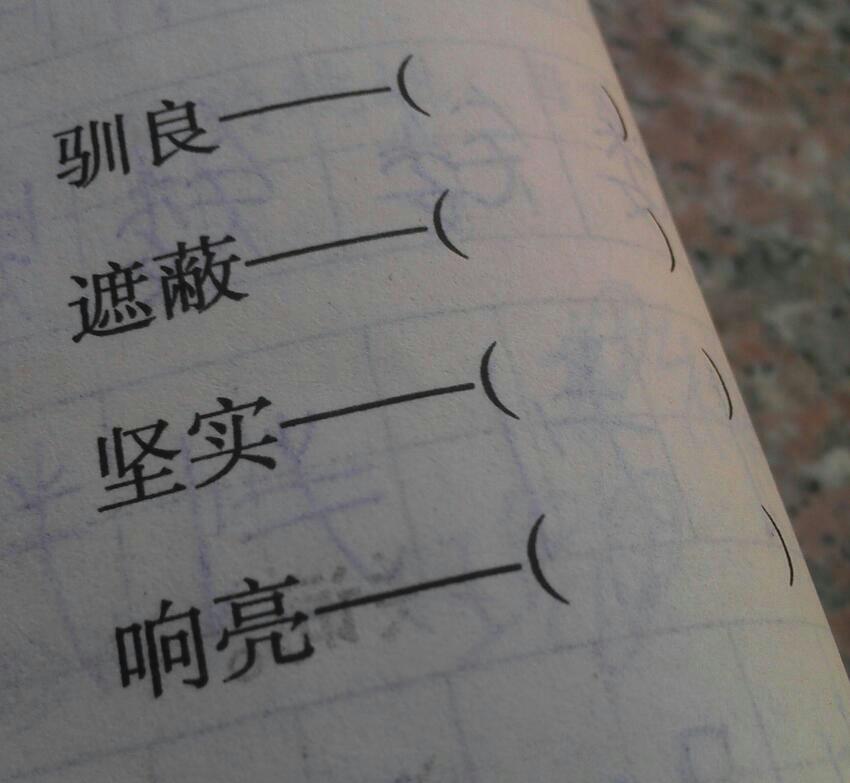 驯良——(    )
遮蔽——(    )
坚实——(    )
响亮——(    )